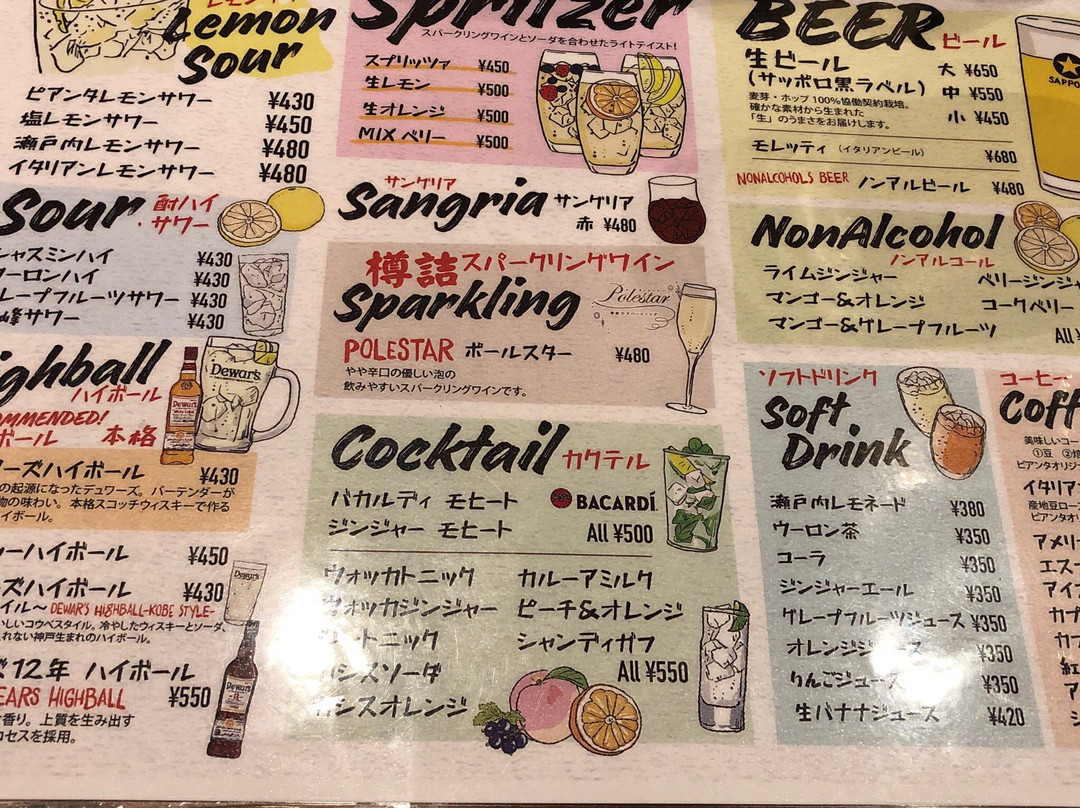 Lemon
Sour
ピアンタレモンサワー ¥430
塩レモンサワー ¥450
瀬戸内レモンサワー ¥480
イタリアンレモンサワー ¥480
Sour 酎ハイ
・サワー
ャスミンハイ ¥430
ーロンハイ ¥430
レープフルーツサワー ¥430
峰サワー ¥430
ghball
ハイボール
OMMENDED!
ボール 本格
ーズハイボール ¥430
の起源になったデュワーズ。バーテンダーが
物の味わい。本格スコッチウィスキーで作る
イボール。
ーハイボール ¥450
ズハイボール ¥430
イル〜DEWAR'S HIGHBALL-KOBE STYLE-
いしいコウベスタイル。冷やしたウィスキーとソーダ、
れない神戸生まれのハイボール。
12年 ハイボール
EARS HIGHBALL ¥550
香り。上質を生み出す
ロセスを採用。
Dewar's
Spritzer
スパークリングワインとソーダを合わせたライトテイスト!
スプリッツァ ¥450
生レモン ¥500
生オレンジ ¥500
MIX ベリー ¥500
サングリア
Sangria サングリア
赤 ¥480
樽詰スパークリングワイン
Sparkling
Polestar
POLESTAR ポールスター ¥480
やや辛口の優しい泡の
飲みやすいスパークリングワインです。
Cocktail カクテル
バカルディ モヒート BACARDÍ
ジンジャー モヒート All ¥500
ウォッカトニック カルーアミルク
ウォッカジンジャー ピーチ&オレンジ
トニック シャンディガフ
カシスソーダ All ¥550
カシスオレンジ
BEER ビール
生ビール 大 ¥650
(サッポロ黒ラベル) 中 ¥550
麦芽・ホップ 100%協働契約栽培。
確かな素材から生まれた 小 ¥450
「生」のうまさをお届けします。
モレッティ (イタリアンビール) ¥680
NONALCOHOLS BEER ノンアルビール ¥480
SAPPO
NonAlcohol
ノンアルコール
ライムジンジャー ベリージンジャ
マンゴー&オレンジ コークベリー
マンゴー&グレープフルーツ All ¥
ソフトドリンク
Soft
Drink
瀬戸内レモネード ¥380
ウーロン茶 ¥350
コーラ ¥350
ジンジャーエール ¥350
グレープフルーツジュース ¥350
オレンジジュース ¥350
りんごジュース ¥350
生バナナジュース ¥420
コーヒー
Coff
美味しいコー
①豆 ②焙
ピアンタオリジ
イタリア
産地豆ロー
ピアンタオリ
アメリ
エスー
アイ
カプ
カフ
紅
ア